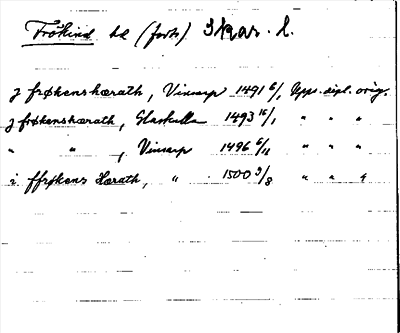 Frökind hd (forts) Skar. l.
j frøkenshærath, Vinarp 1491 6/1, Upps. dipl. orig.
j frökenshærath, Slaskulla 1493 15/1 " " "
" " , Vinarp 1496 6/11 " " "
i ffrøkens Hærath, " 1500 9/8 " " "